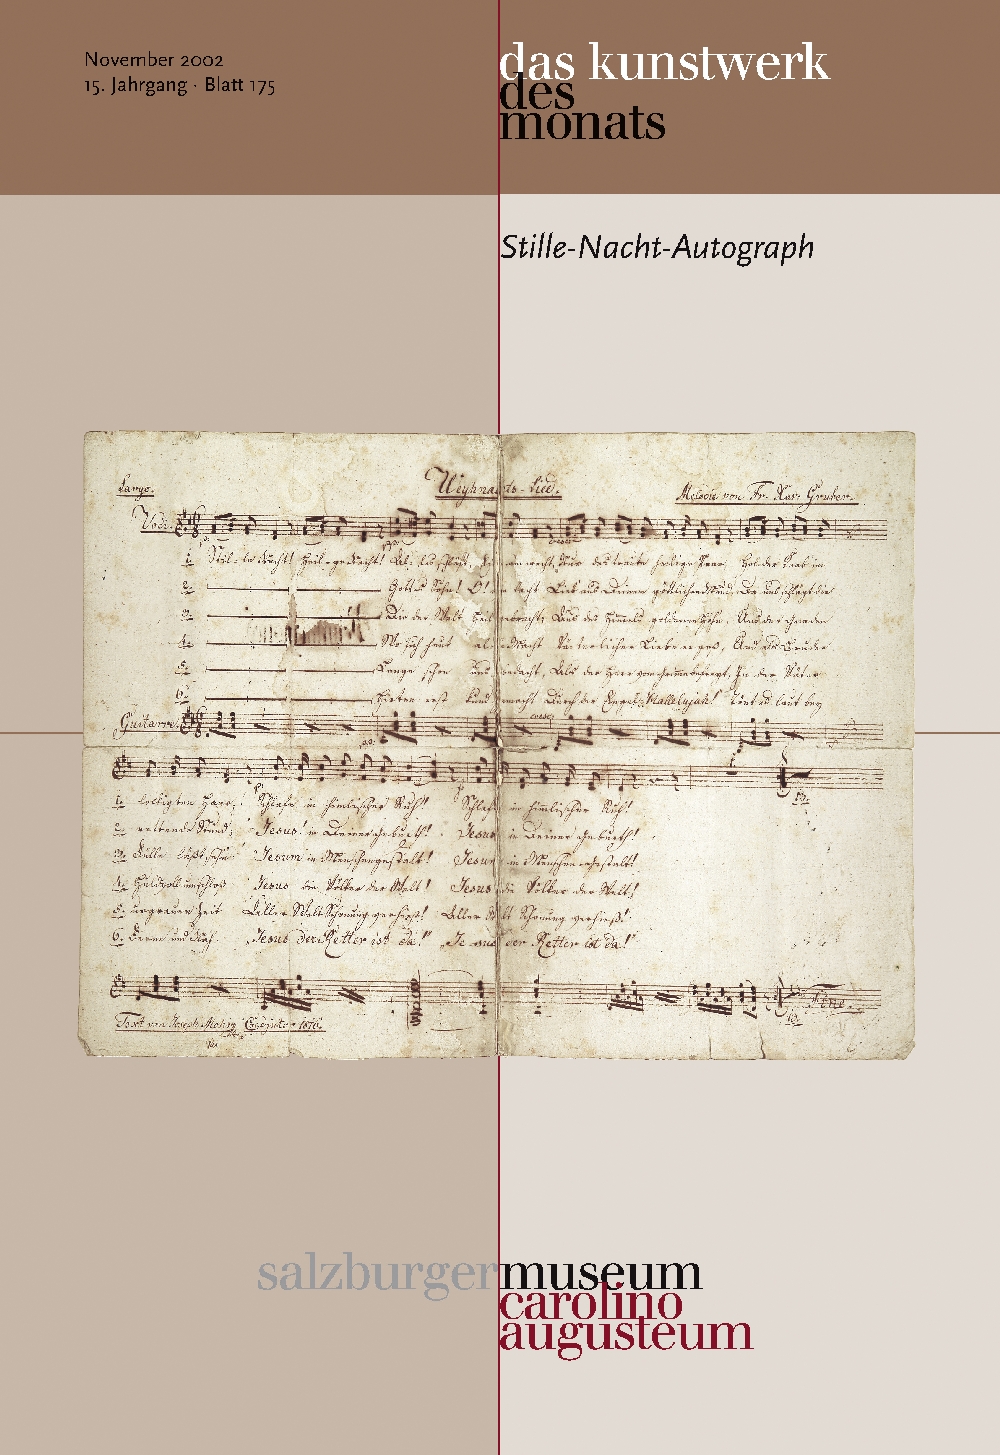 November 2002
15. Jahrgang · Blatt 175
das kunstwerk
des
monats
Stille-Nacht-Autograph
Largo.
Weyhnachts-Lied.
Melodie von Fr. Xav. Gruber.
Voci.
1. Stille Nacht! Heilige Nacht!
2. Gottes Sohn! O!
3. Die der Welt Heil gebracht; Aus des Himmels goldenen Höhn,
4. Wo sich heut Macht väterlicher Liebe ergoß,
5. Lange schon uns bedacht, Als der Herr vom Grimme befreyt, In der Väter
6. Hirten erst kund gemacht Durch der Engel Hallelujah! Tönt es laut bey
Guitarre.
1. lockigten Haar; Schlafe in himlischer Ruh! Schlafe in himlischer Ruh!
2. rettende Stund; Jesus! in Deiner Geburth! Jesus in Deiner Geburth!
3. Fülle läßt sehn Jesum in Menschengestalt! Jesum in Menschengestalt!
4. Huldvoll umschloß Jesus die Völker der Welt! Jesus die Völker der Welt!
5. urgrauer Zeit Aller Welt Schonung verhieß! Aller Welt Schonung verhieß!
6. Ferne und Nah Jesus der Retter ist da! Jesus der Retter ist da!
Fine.
Text von Joseph Mohr
salzburgermuseum
carolino
augusteum